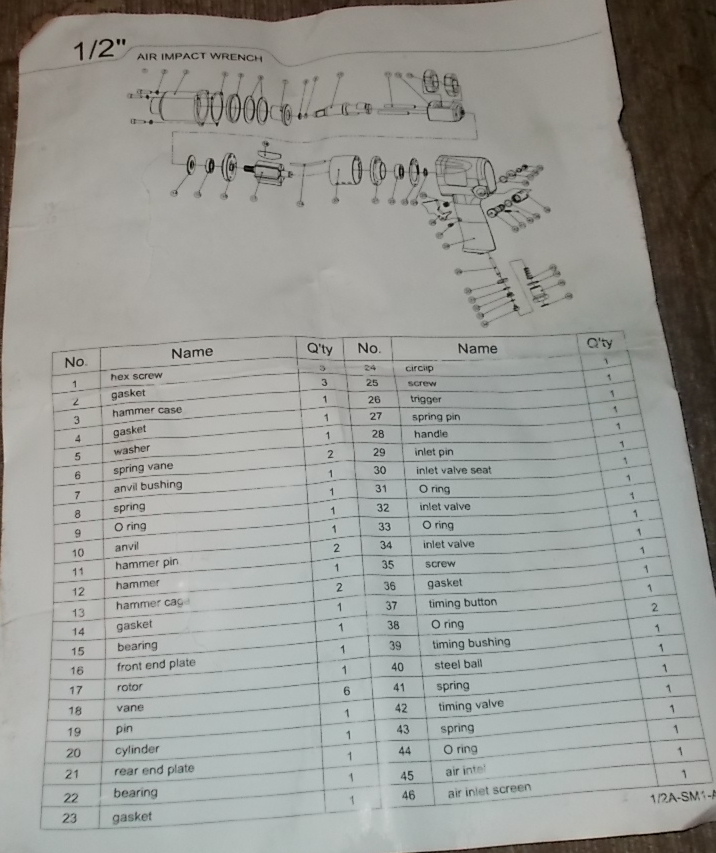 1/2"
AIR IMPACT WRENCH
No. Name Q'ty No. Name Q'ty
1 hex screw 3 24 circlip 1
2 gasket 3 25 screw 1
3 hammer case 1 26 trigger 1
4 gasket 1 27 spring pin 1
5 washer 1 28 handle 1
6 spring vane 2 29 inlet pin 1
7 anvil bushing 1 30 inlet valve seat 1
8 spring 1 31 O ring 1
9 O ring 1 32 inlet valve 1
10 anvil 1 33 O ring 1
11 hammer pin 2 34 inlet valve 1
12 hammer 1 35 screw 1
13 hammer cage 2 36 gasket 1
14 gasket 1 37 timing button 1
15 bearing 1 38 O ring 2
16 front end plate 1 39 timing bushing 1
17 rotor 1 40 steel ball 1
18 vane 6 41 spring 1
19 pin 1 42 timing valve 1
20 cylinder 1 43 spring 1
21 rear end plate 1 44 O ring 1
22 bearing 1 45 air intel 1
23 gasket 1 46 air inlet screen 1
1/2A-SM1-A